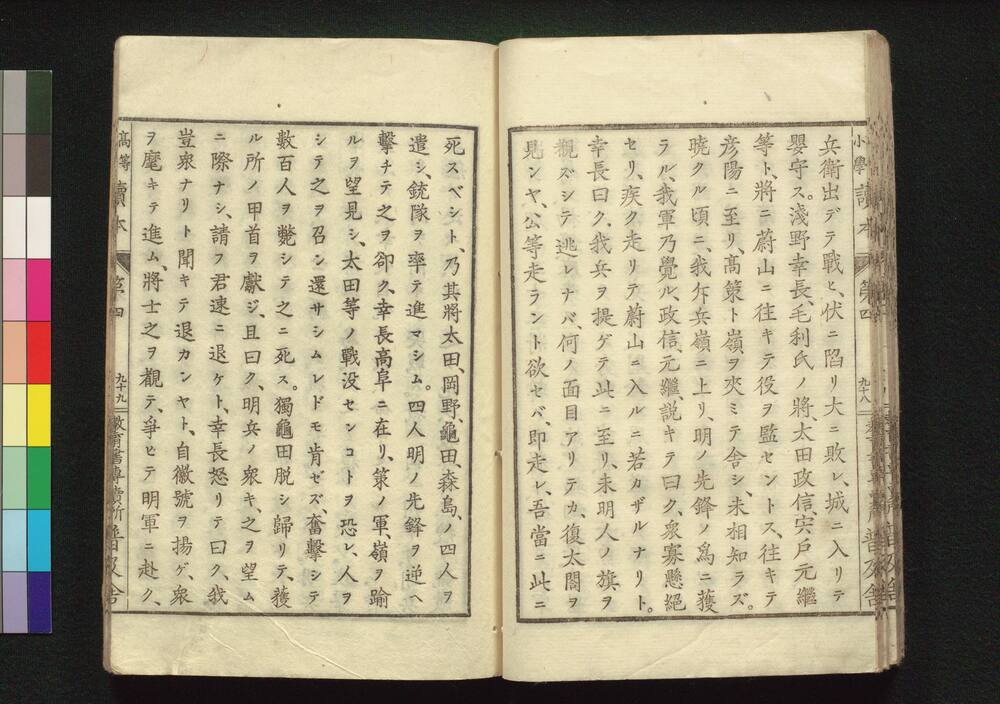 小學讀本 第四 九十八 普及舍
兵衛出デテ戰ヒ、伏ニ陷リ大ニ敗レ、城ニ入リテ
嬰守ス。淺野幸長、毛利氏ノ將、太田政信、宍戶元繼
等ト、將ニ蔚山ニ往キテ役ヲ監セントス、往キテ
彥陽ニ至リ、高策ト嶺ヲ夾ミテ舍シ、未相知ラズ。
曉クル頃ニ、我乍兵嶺ニ上リ、明ノ先鋒ノ爲ニ獲
ラル、我軍乃覺ル、政信、元繼說キテ曰ク、衆寡懸絕
セリ、疾ク走リテ蔚山ニ入ルニ若カザルナリト。
幸長曰ク、我兵ヲ提ゲテ此ニ至リ、未明人ノ旗ヲ
觀ズシテ逃レナバ、何ノ面目アリテカ、復太閤ヲ
見ンヤ、公等走ラント欲セバ、卽走レ、吾當ニ此ニ
死スベシト、乃其將太田、岡野、龜田、森島、ノ四人ヲ
遣シ、銃隊ヲ率テ進マシム。四人明ノ先鋒ヲ逆ヘ
擊チテ之ヲ卻ク、幸長高阜ニ在リ、策ノ軍、嶺ヲ踰
ルヲ望見シ、太田等ノ戰沒センコトヲ恐レ、人ヲ
シテ之ヲ召ン還サシムレドモ肯ゼズ、奮擊シテ
數百人ヲ斃シテ之ニ死ス。獨龜田脫シ歸リテ、獲
ル所ノ甲首ヲ獻ジ、且曰ク、明兵ノ衆キ、之ヲ望ム
ニ際ナシ、請フ君速ニ退ケト、幸長怒リテ曰ク、我
豈衆ナリト聞キテ退カンヤト、自徽號ヲ揚ゲ、衆
ヲ麾キテ進ム、將士之ヲ觀テ、爭ヒテ明軍ニ赴ク、
高等讀本 第四 九十九 教育書專賣所普及舍